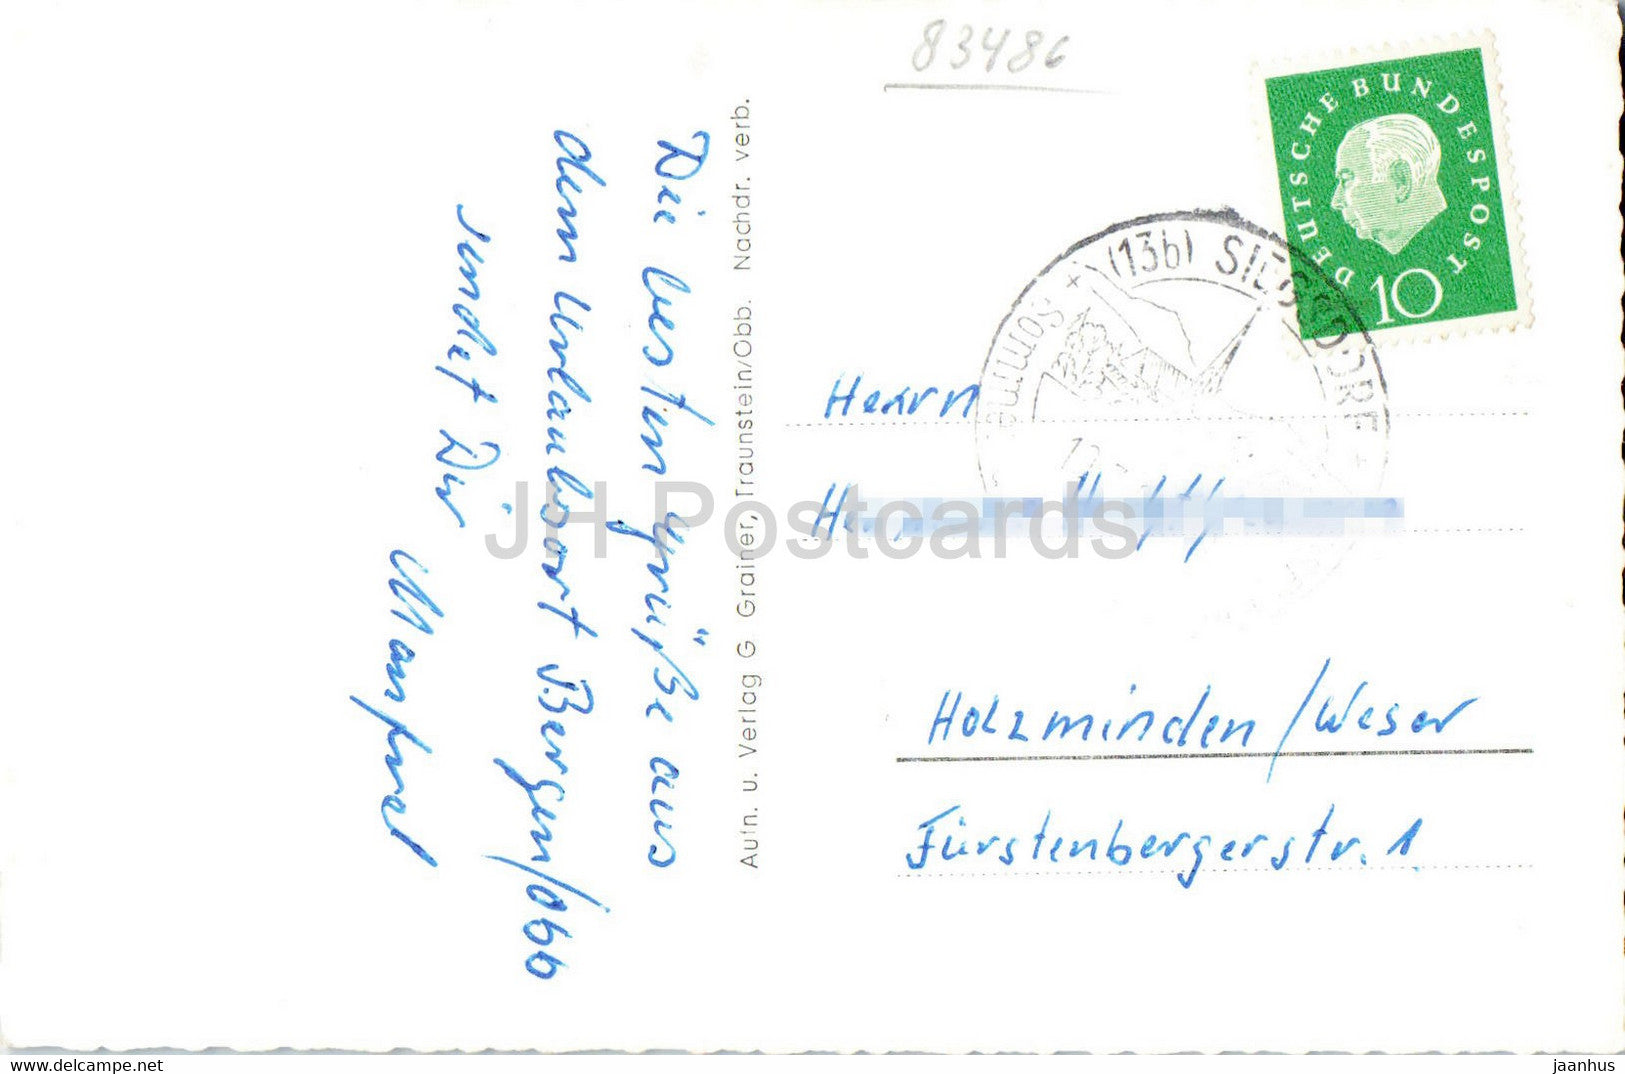 83486
DEUTSCHE BUNDESPOST
10
(13b) SIEGSDORF
Somme
Die besten Grüße aus
dem Urlaubsort Bergen/Obb
sendet Dir
Manfred
Aufn. u. Verlag G Grainer, Traunstein/Obb. Nachdr. verb.
Herrn
Holzminden/Weser
Fürstenbergerstr. 1
JH Postcards
www.delcampe.net
jaanhus